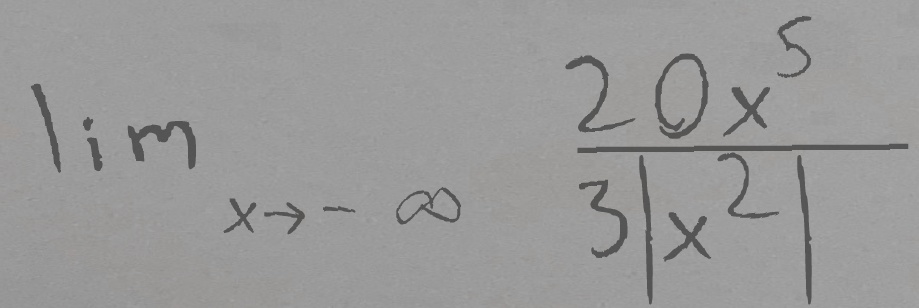 lim x→-∞ 20x⁵ / 3|x²|